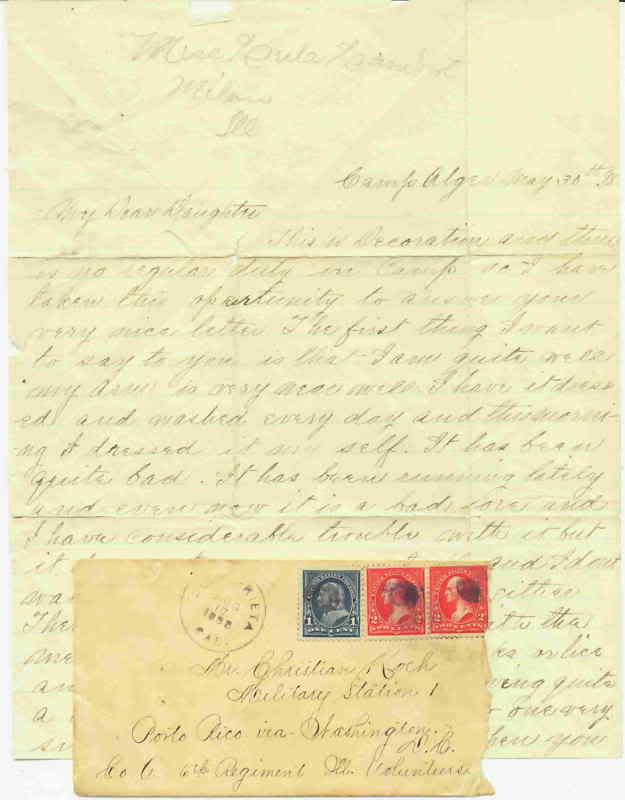 Miss
Milan
Ill
Camp Alger May 30th 98
My Dear Daughter
This is Decoration and there
is no regular duty in Camp so I have
taken this opertunity to answer your
very nice letter The first thing I want
to say to you is that I am quite well
my Arm is very near well I have it dress
ed and washed every day and this morni
ng I dressed it my self. It has been
quite bad. It has been running lately
and even now it is a bad sore and
I have considerable trouble with it but
it and I dont
wa either
The the
me or lice
an ing quite
a one very
hen you
RIETA
17
1898
UNITED STATES
1 1
ONE CENT
2 2
TWO CENTS
2 2
TWO CENTS
Mr. Christian Koch
Military Station 1
Porto Rico via Washington.
D. C.
Co A 6th Regiment Ill. Volunteers